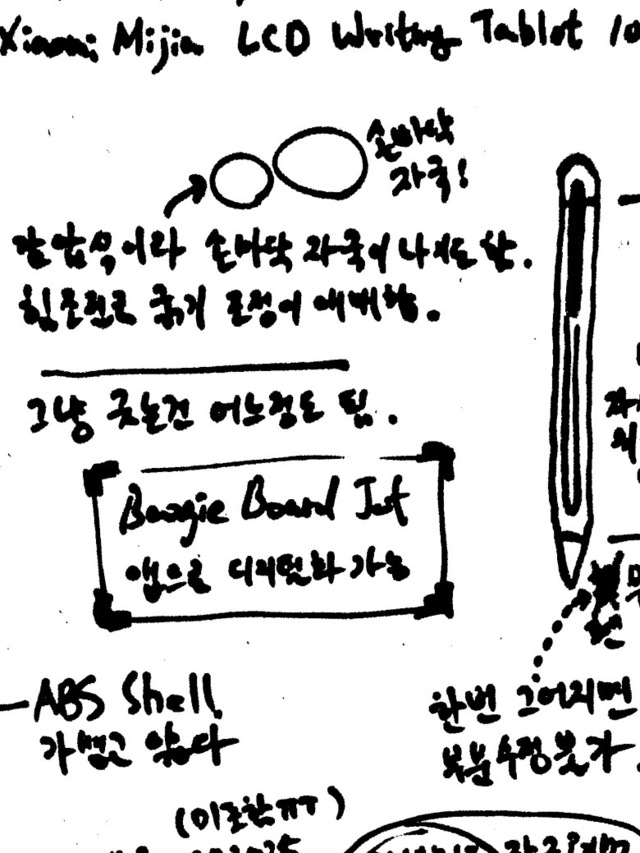 Xiaomi Mijia LCD Writing Tablet 10
손바닥
자국!
감압식이라 손바닥 자국이 나기도 함.
힘조절로 굵기 조정이 애매함.
그냥 긋는건 어느정도 됨.
Boogie Board Jot
앱으로 디지털화 가능
ABS Shell
가볍고 얇다
한번 그어지면
부분수정 불가.